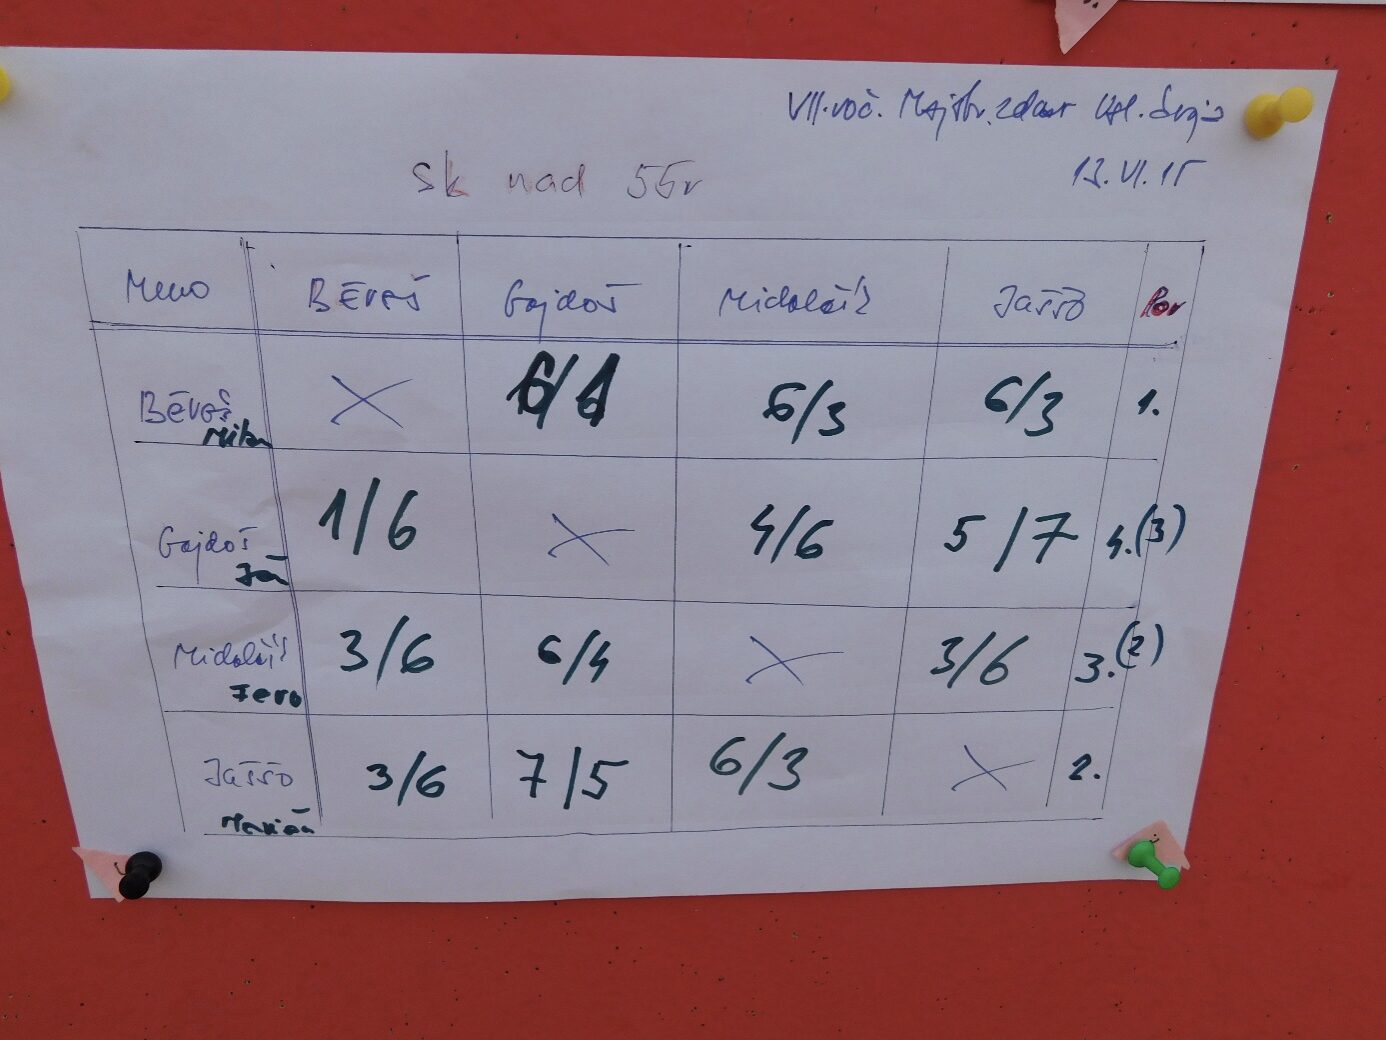 VII. roč. Majstr. zdat
13.VI.15
sk nad 55r
Meno Béreš Gajdoš Midoláší Jaššo Por
Béreš Milan X 6/1 6/3 6/3 1.
Gajdoš Ján 1/6 X 4/6 5/7 4.(3)
Jero 3/6 6/4 X 3/6 3.(2)
Jaššo Marián 3/6 7/5 6/3 X 2.